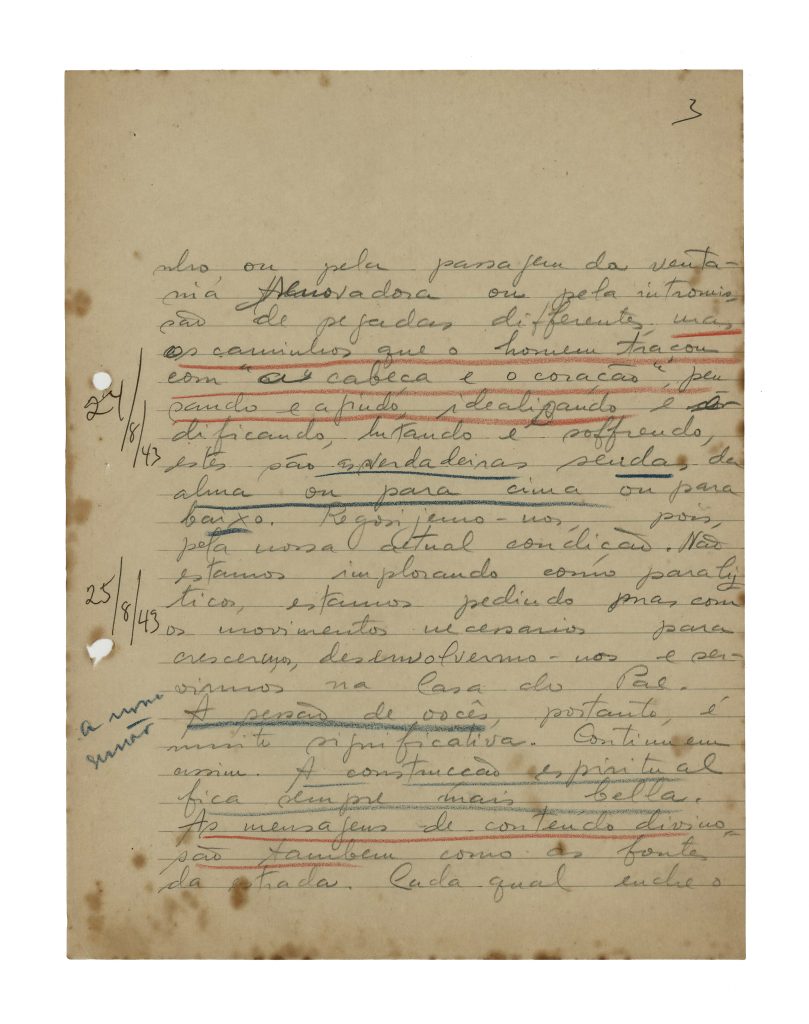 3
nho, ou pela passagem da venta-
nia renovadora ou pela intromis-
são de pegadas differentes, mas
os caminhos que o homem traçou
com "a cabeça e o coração", pen
sando e agindo, idealizando e e
dificando, lutando e soffrendo,
estes são as verdadeiras sendas da
alma ou para cima ou para
baixo. Regosijemo-nos, pois,
pela nossa actual condição. Não
24/8/43
estamos implorando como paraly
ticos, estamos pedindo mas com
os movimentos necessarios para
25/8/43
crescermos, desenvolvermo-nos e ser-
virmos na Casa do Pae.
A sessão de vocês, portanto, é
a nova
reunião
muito significativa. Continuem
assim. A construcção espiritual
fica sempre mais bella.
As mensagens de conteúdo divino
são tambem como as fontes
da estrada. Cada qual enche o